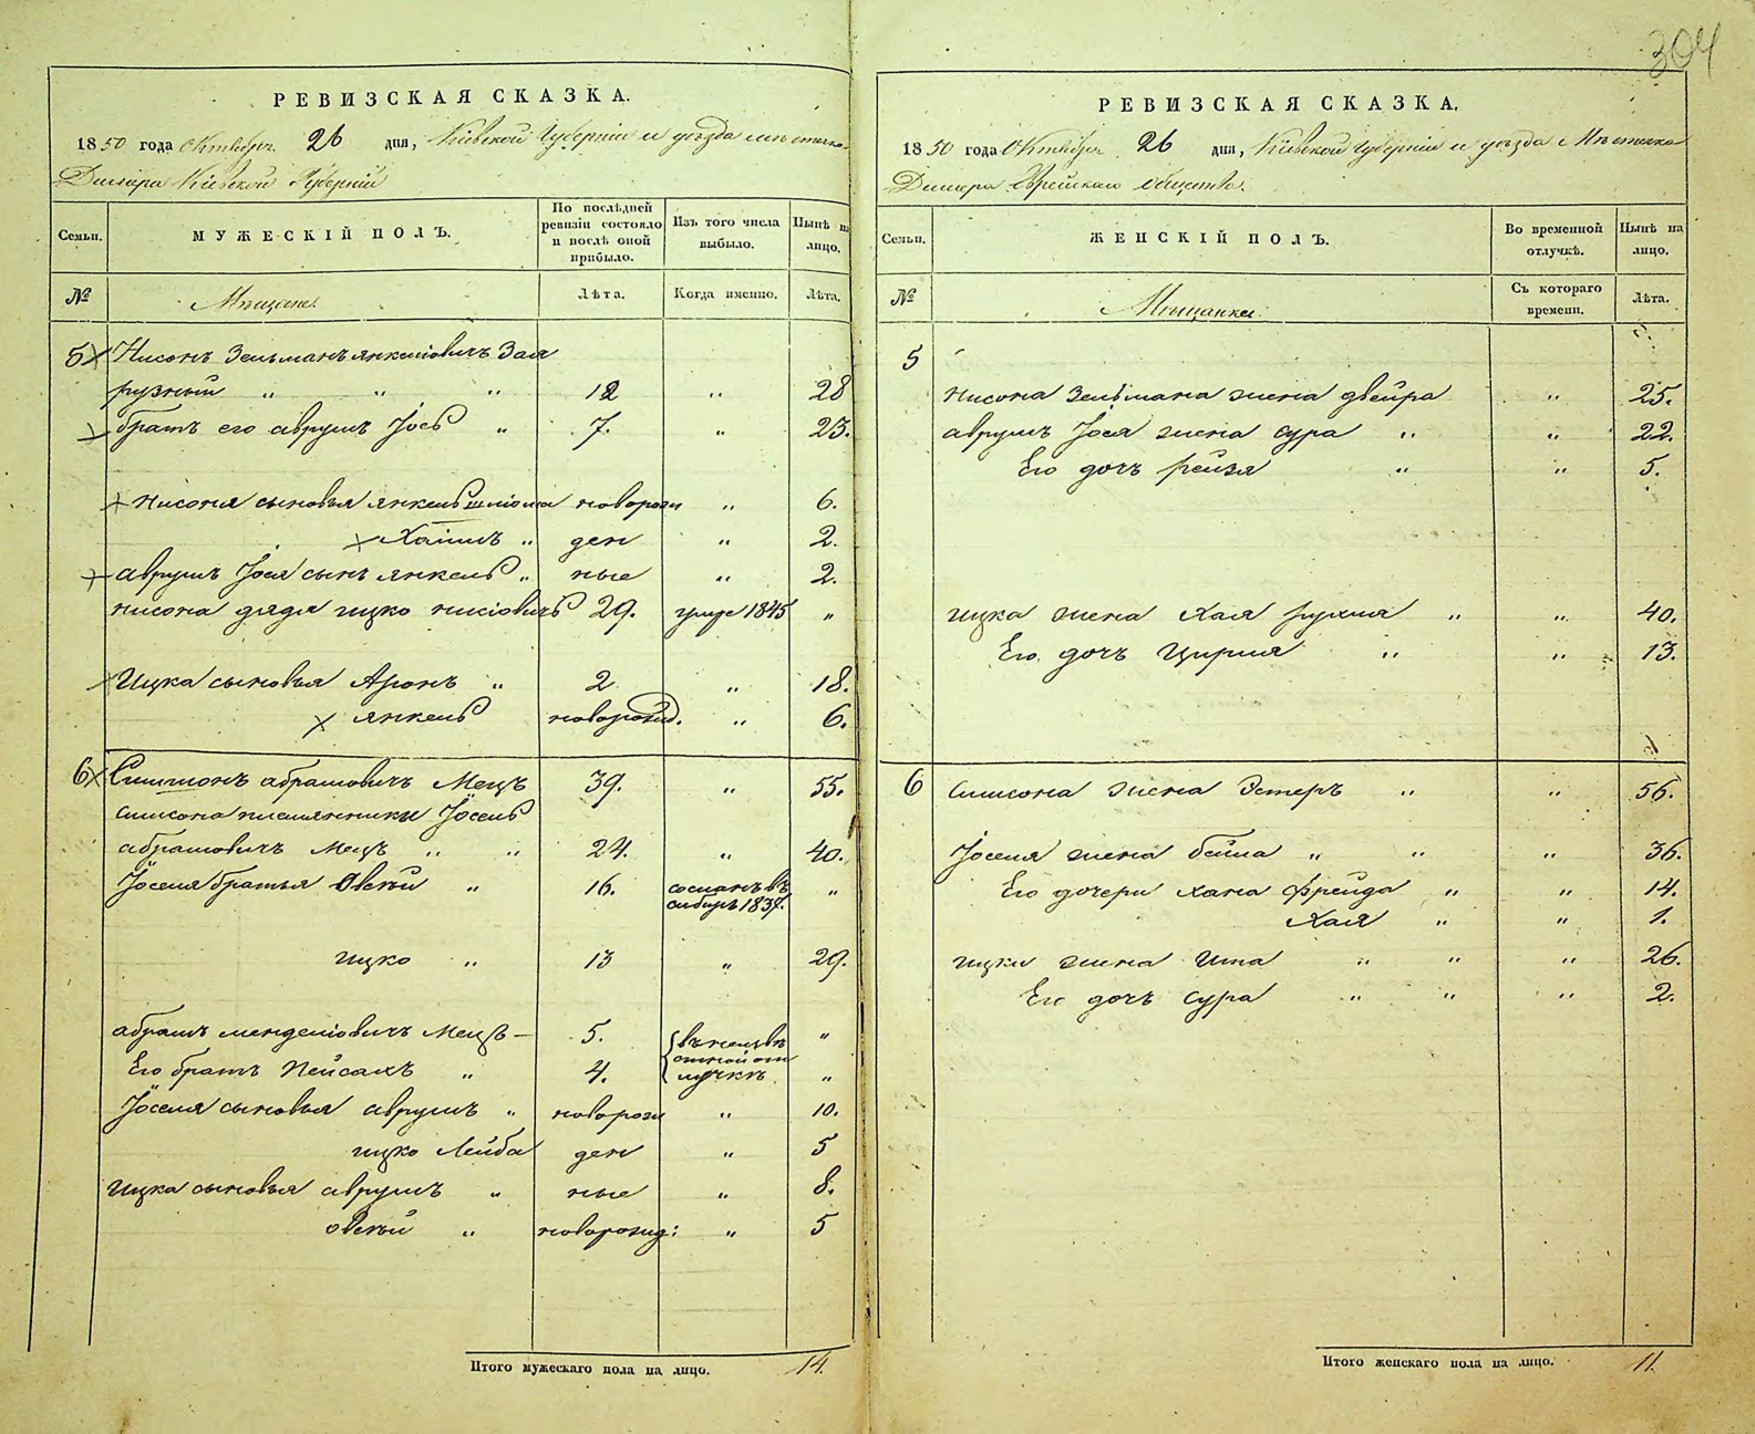 304
РЕВИЗСКАЯ СКАЗКА.
1850 года Октября 26 дня, Кіевской Губерніи и уезда мѣстечко
Димера Кіевской Губерніи
Семьи.
МУЖЕСКІЙ ПОЛЪ.
По послѣдней ревизіи состояло и послѣ оной прибыло.
Изъ того числа выбыло.
Нынѣ на лицо.
№
Мѣщане.
Лѣта.
Когда именно.
Лѣта.
5 Нисонъ Зельманъ янкеліовичъ Заг
рузный " " " 12 " 28
братъ его аврумъ Іось " 7. " 23.
Нисона сыновья янкель шліома новорож " 6.
Хаимъ " ден " 2.
аврумъ Іося сынъ янкель " ные " 2.
нисона дядя ицко нисіовичъ 29. умре 1845 "
Ицка сыновья Аронъ " 2 " 18.
янкель новорожд. " 6.
6 Симшонъ абрамовичъ Мецъ 39. " 55.
симсона племянники Іосель
абрамовичъ Мецъ " " 24. " 40.
Іоселя братья Овсѣй " 16. сосланъ въ сибирь 1837. "
ицко " 13 " 29.
абрамъ менделіовичъ Мецъ — 5. "
Его братъ Пейсахъ " 4. "
{въ неизвѣ
стной от
лучкѣ.
Іоселя сыновья аврумъ " новорож " 10.
ицко Лейба ден " 5
Ицка сыновья аврумъ " ные " 8.
овсѣй " новорожд: " 5
Итого мужескаго пола на лицо. 14.
РЕВИЗСКАЯ СКАЗКА.
1850 года Октября 26 дня, Кіевской Губерніи и уезда Мѣстечка
Димера Еврейскаго общества.
Семьи.
ЖЕНСКІЙ ПОЛЪ.
Во временной отлучкѣ.
Нынѣ на лицо.
№
Мѣщанки.
Съ котораго времени.
Лѣта.
5
нисона Зельмана жена двейра " 25.
аврумъ Іося жена сура " " 22.
Его дочъ рейзя " " 5.
ицка жена хая рухля " " 40.
Его дочъ Цирля " " 13.
6 Симсона жена Эстеръ " " 56.
Іоселя жена бейла " " " 36.
Его дочери хана фрейда " " 14.
Хая " " 1.
ицки жена Ита " " " 26.
Его дочъ сура " " " 2.
Итого женскаго пола на лицо. 11.